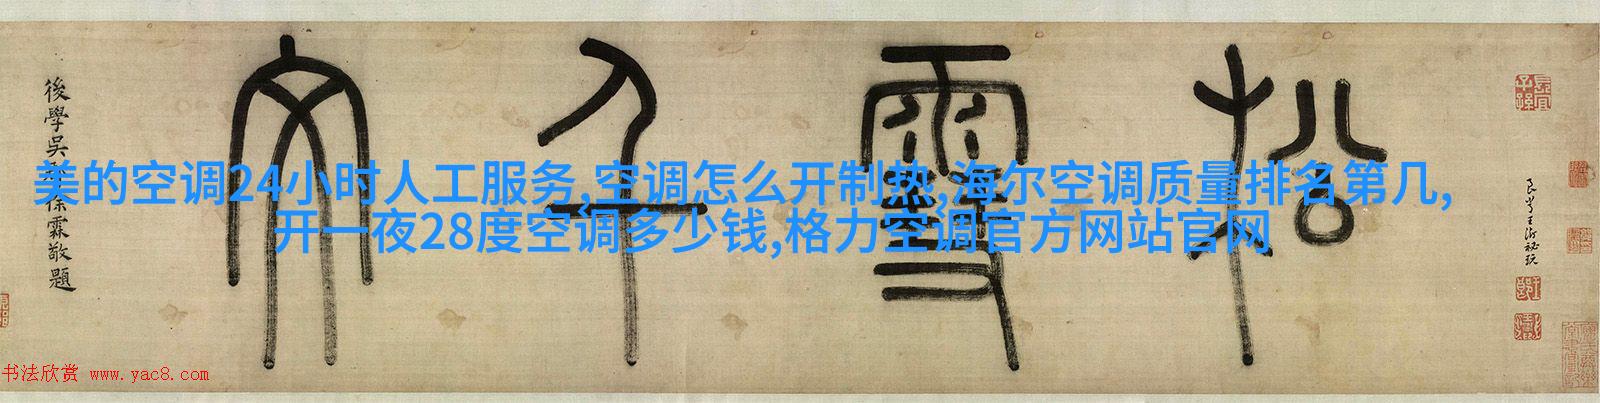 松雪千文
後學吳
徐霖敬題
美的空调24小时人工服务,空调怎么开制热,海尔空调质量排名第几,
开一夜28度空调多少钱,格力空调官方网站官网
书法欣赏 www.yac8.com